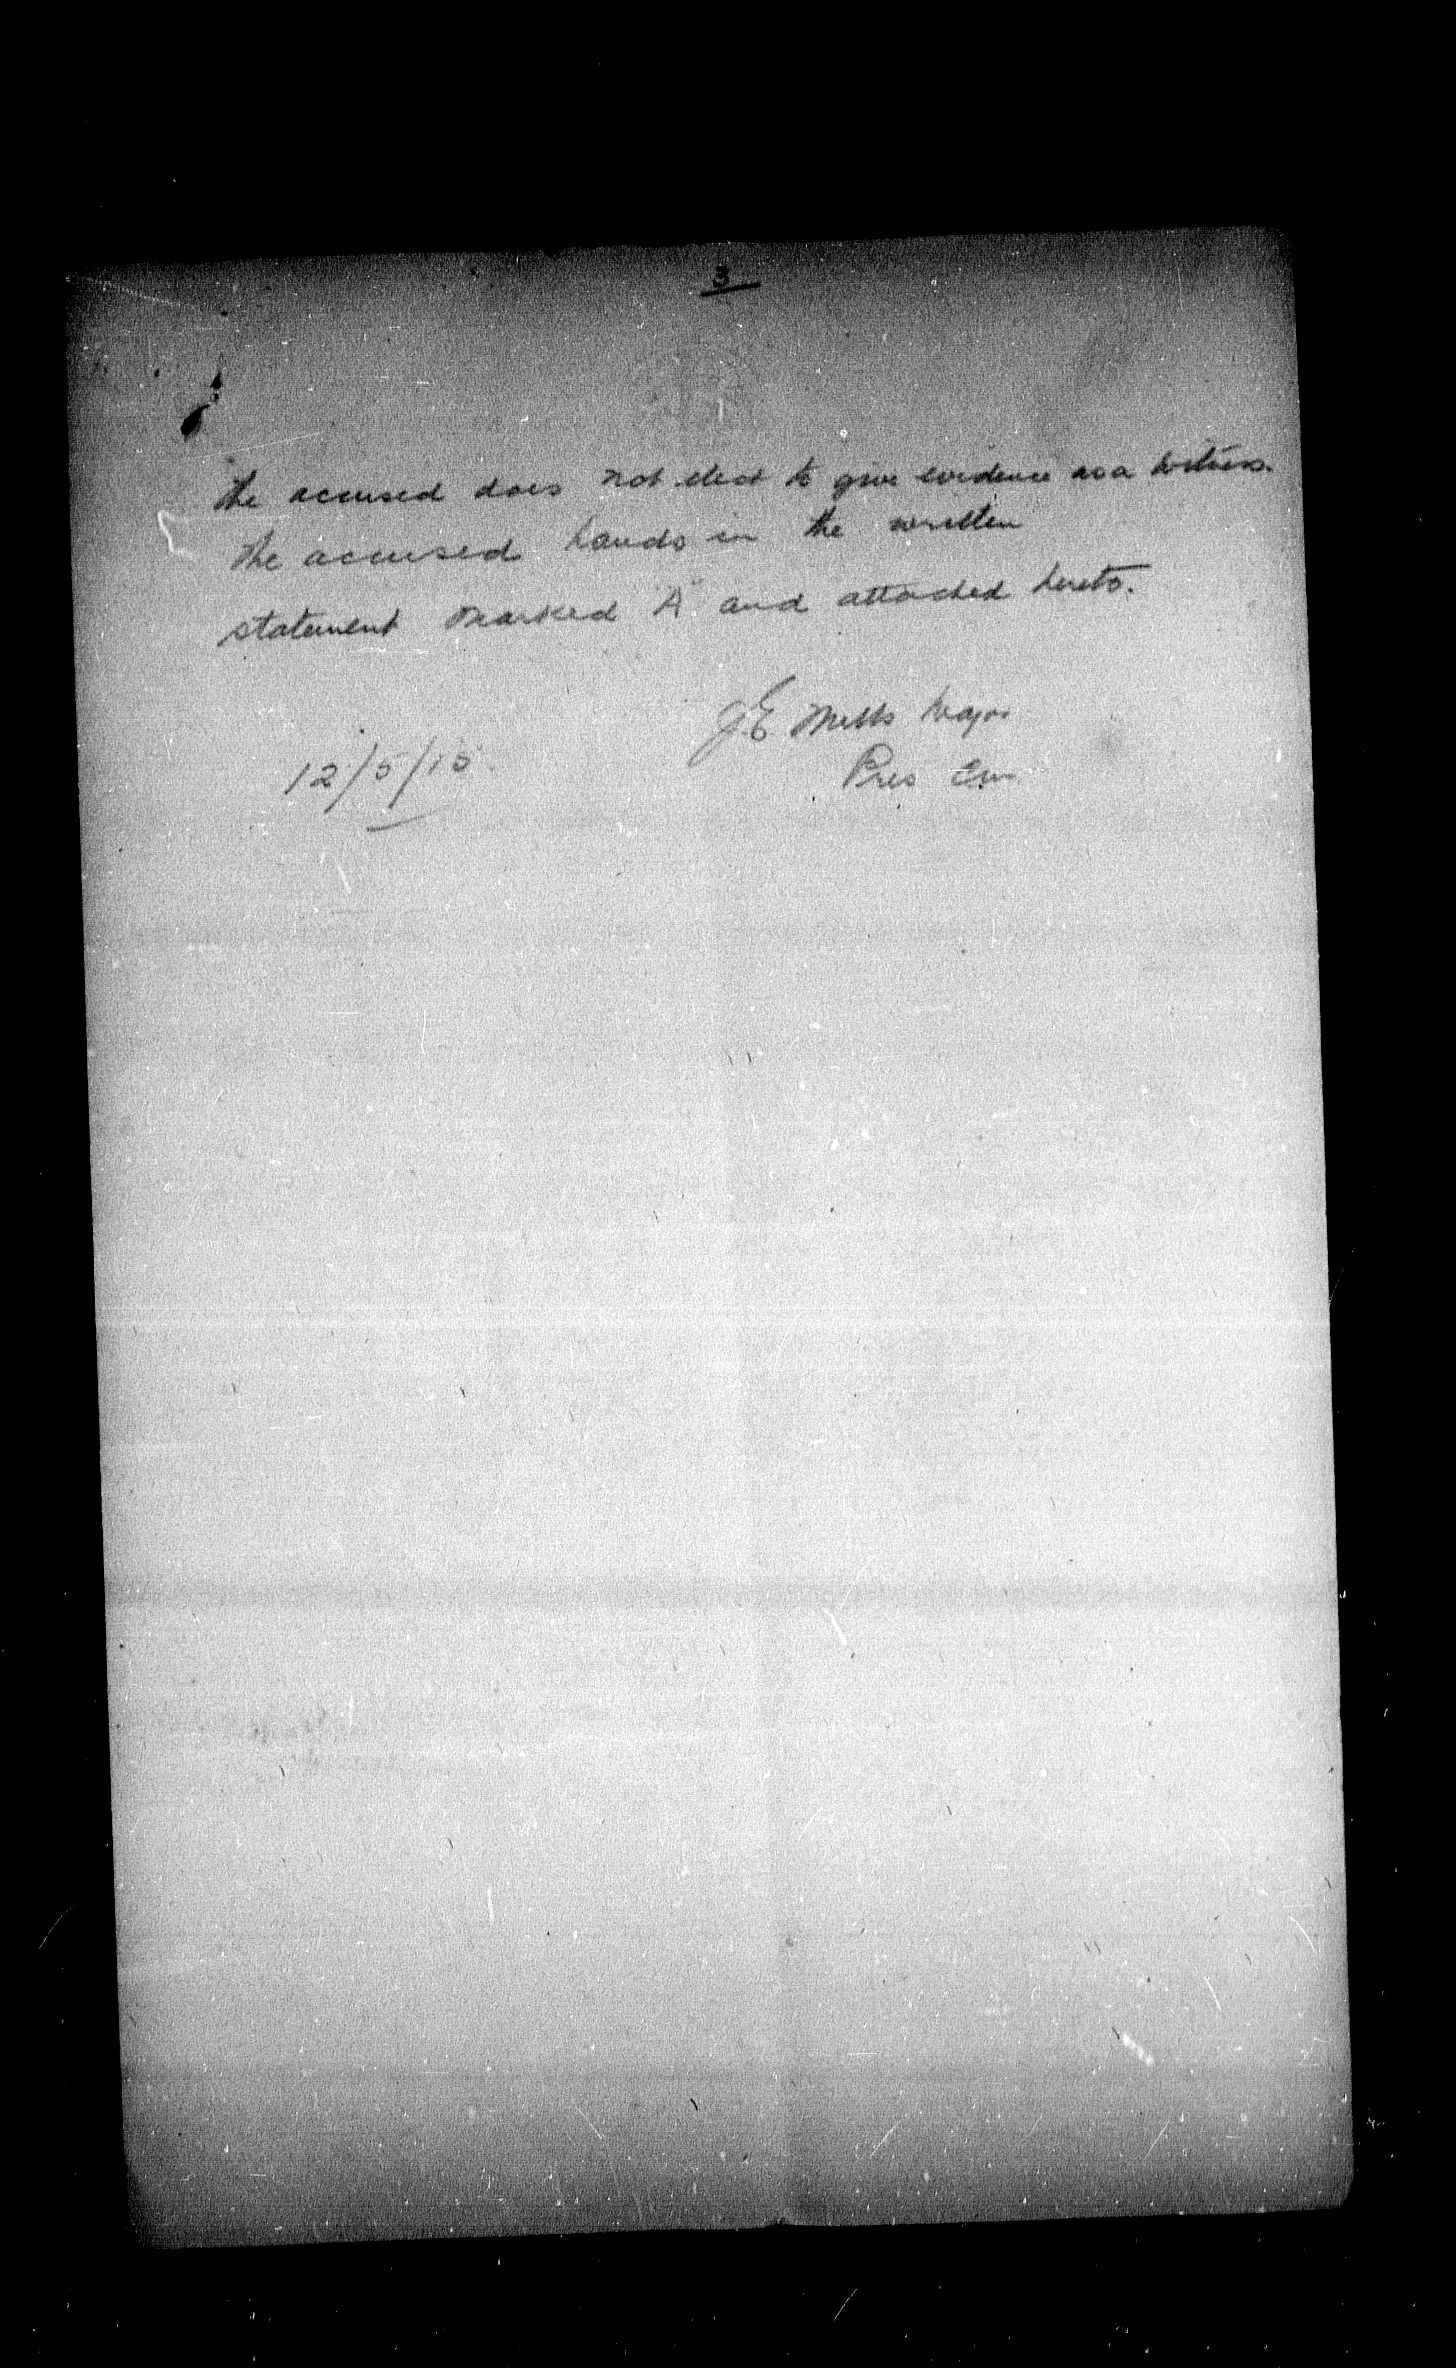 3
The accused does not elect to give evidence as a witness.
The accused hands in the written
statement marked "A" and attached hereto.
J E Mills Major
12/5/15.
Pres